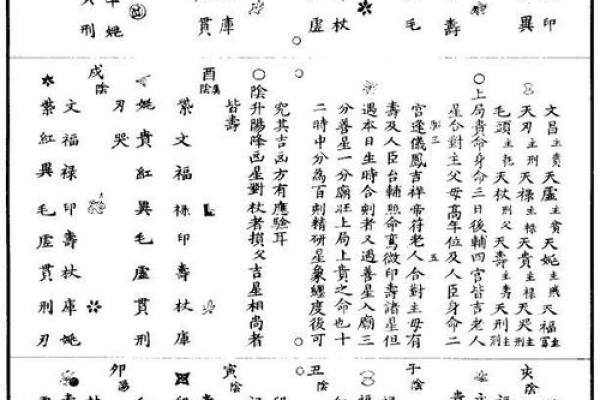 印
異
壽
毛
虛
杖
庫
貫
姚
刑
文昌主貴天虛主貪天姚主賊天福主富
天刃主刑天祿主祿天貴主祿天哭主刑
毛頭主 天杖刑父天壽主壽天刑主刑
○上局貴命身命三日後輔四宮皆吉老人
星合對主父母高年位及人臣身命二
宮逢儀鳳吉祥帝符老人合對主母有
壽及人臣台輔照命鸞微印壽諸星但
遇本日生時合刻者又遇善星入廟三
分善星一分廟旺上局上貴之命也十
二時中分為百刻精研星象纏度後可
究其吉凶方有應驗耳
○陰升陽降凶星對杖者損父吉星相尚者
皆壽
酉陰
紫文福祿印壽杖庫
姚貴紅異毛虛貫刑
刃哭
戌陰
文福祿印壽杖庫姚
紫紅異毛虛貫刑刃
亥陰
子陰
丑陰
寅陰
卯陽